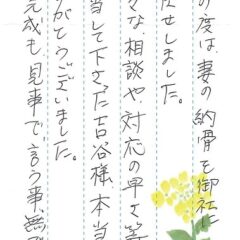 の度は、妻の納骨を御社に
任せしました。
々な、相談や、対応の早さ等
当して下さった古谷様、本当
がとうございました。
完成も、見事で、言う事無で